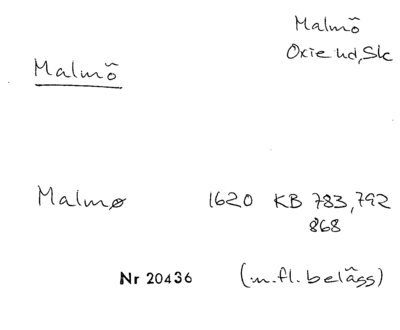 Malmö
Oxie hd, Sk
Malmö
Malmø 1620 KB 783, 792
868
Nr 20436 (m.fl. belägg)